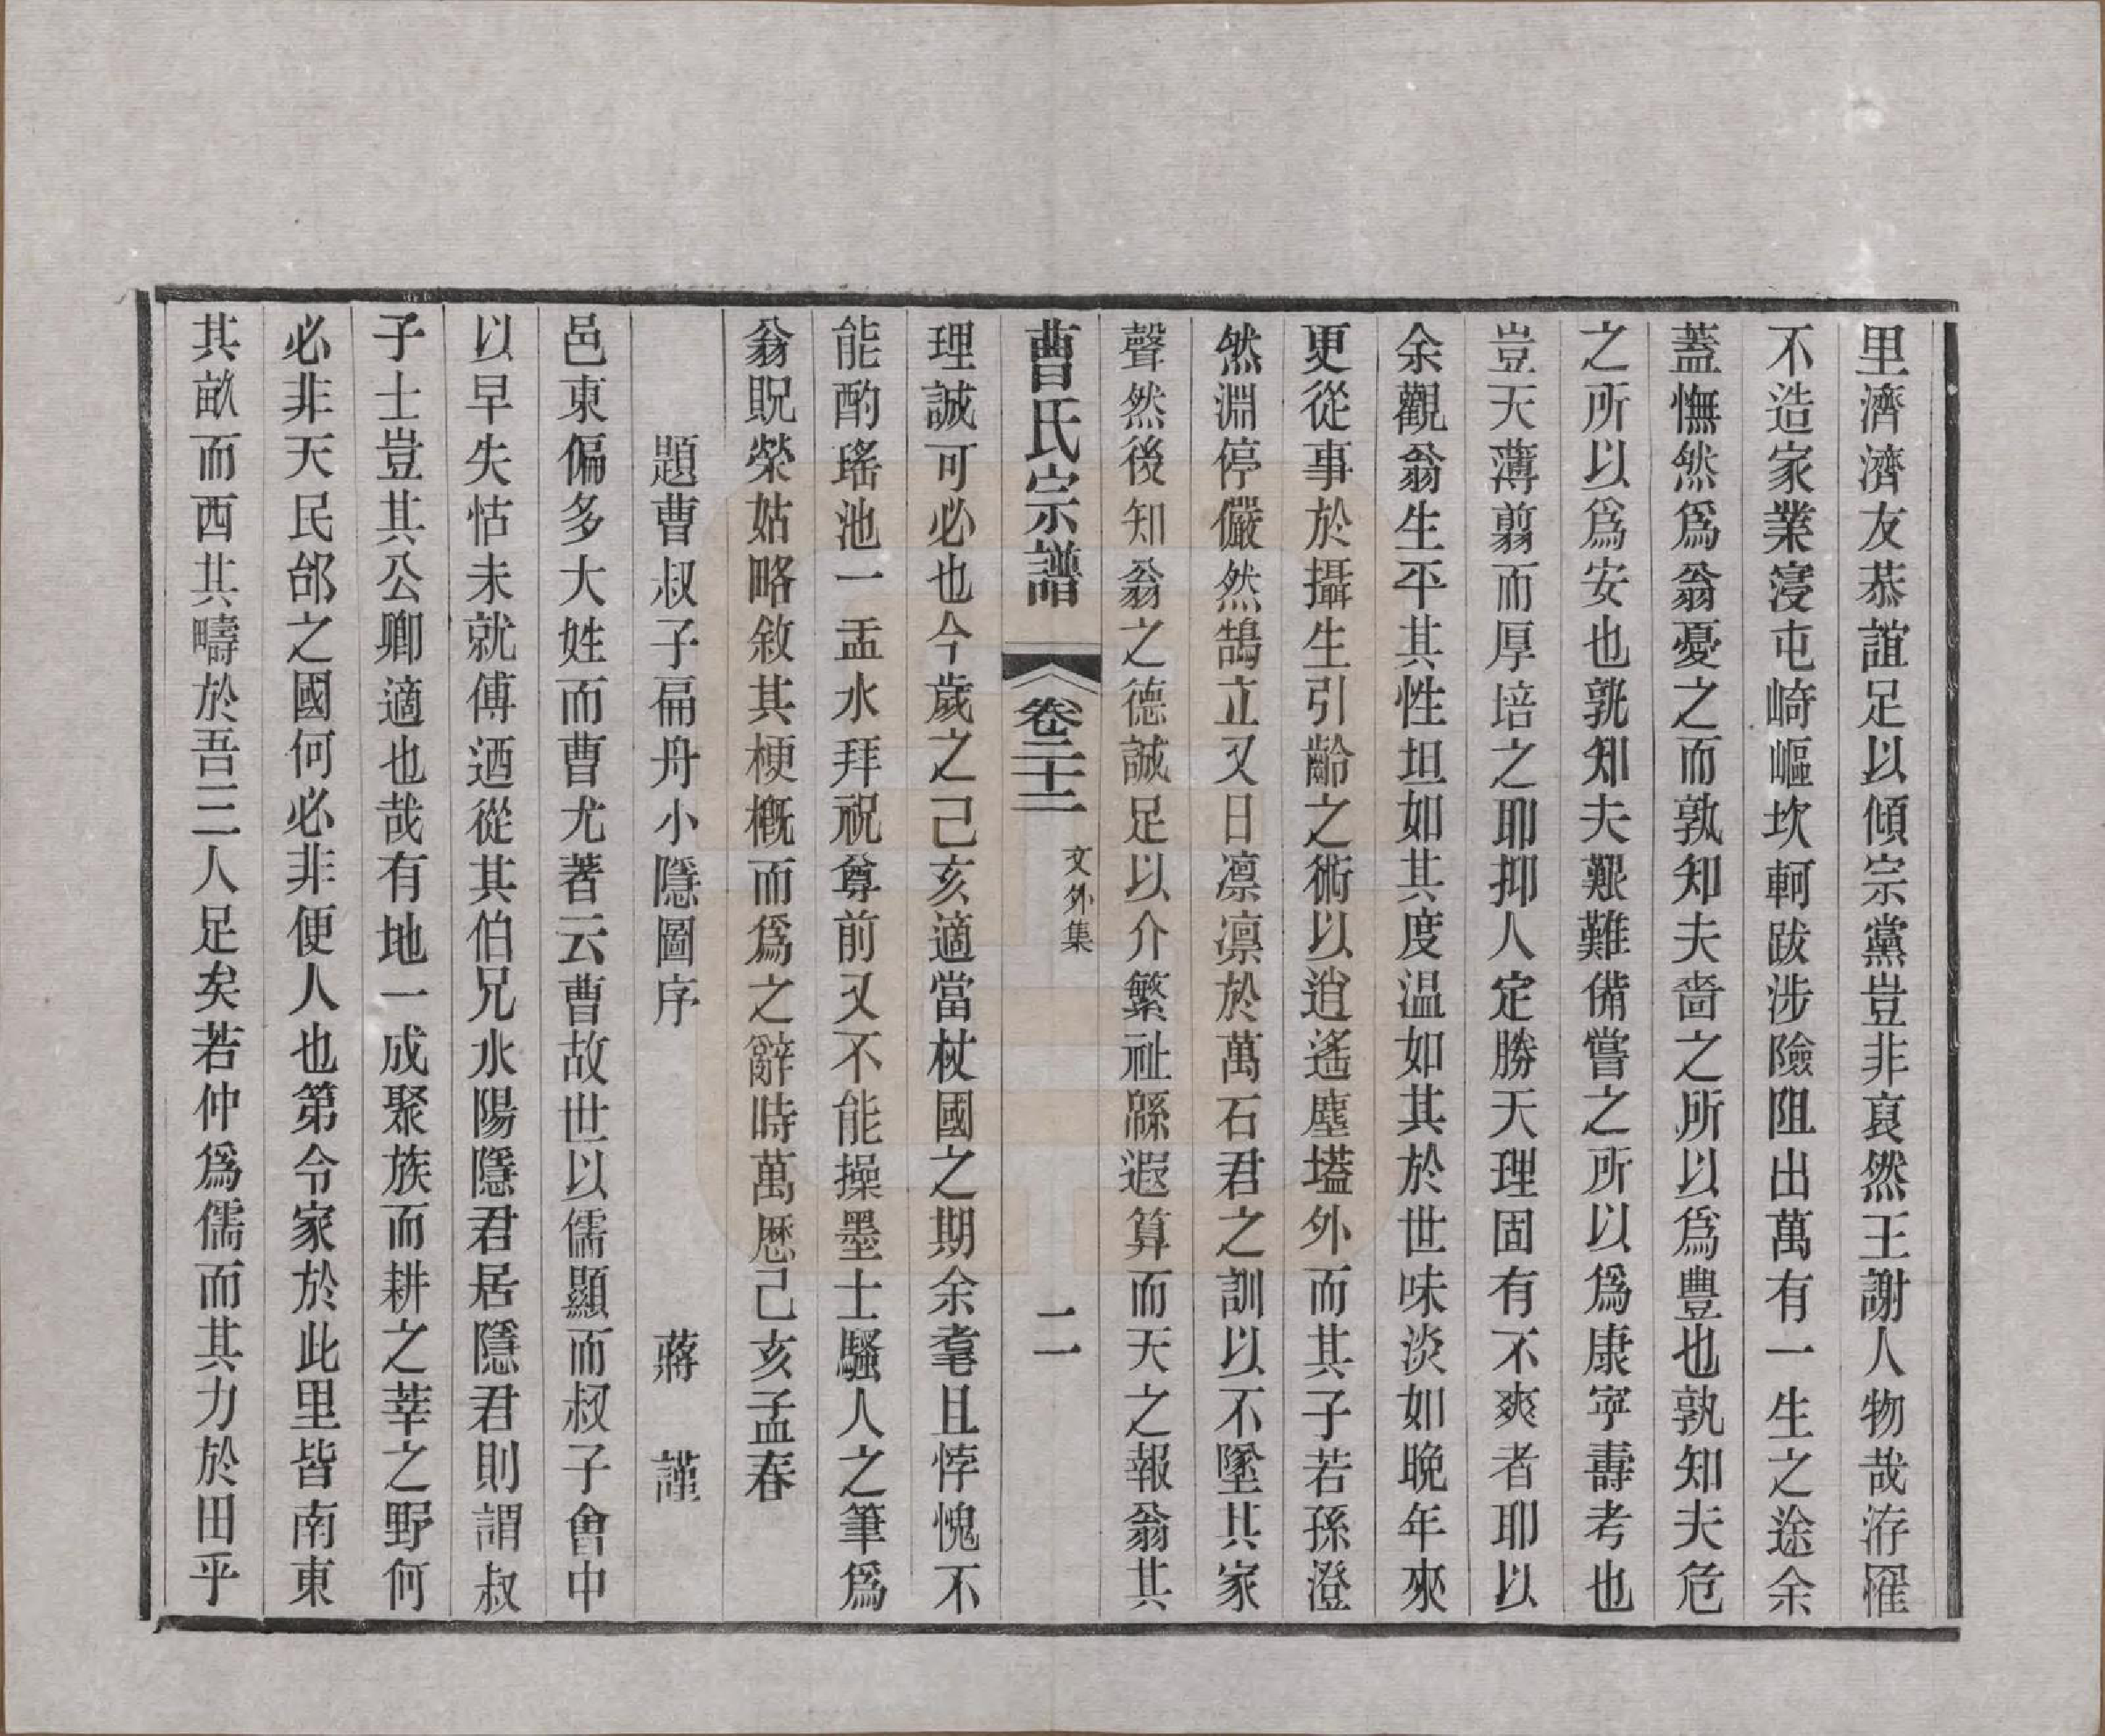 里濟濟友恭誼足以傾宗黨豈非裒然王謝人物哉洊罹
不造家業寖屯崎嶇坎軻跋涉險阻出萬有一生之途余
蓋憮然爲翁憂之而孰知夫嗇之所以爲豐也孰知夫危
之所以爲安也孰知夫艱難備嘗之所以爲康寧壽考也
豈天薄翦而厚培之耶抑人定勝天理固有不爽者耶以
余觀翁生平其性坦如其度温如其於世味淡如晚年來
更從事於攝生引齡之術以逍遙塵壒外而其子若孫澄
然淵停儼然鵠立又日凛凛於萬石君之訓以不墜其家
聲然後知翁之德誠足以介繁祉緜遐算而天之報翁其
曹氏宗譜 卷二十二 文外集 二
理誠可必也今歲之己亥適當杖國之期余耄且悖愧不
能酌瑤池一盂水拜祝尊前又不能操墨士騷人之筆爲
翁貺榮姑略敘其梗槪而爲之辭時萬歷己亥孟春
題曹叔子扁舟小隱圖序 蔣謹
邑東偏多大姓而曹尤著云曹故世以儒顯而叔子會中
以早失怙未就傅迺從其伯兄水陽隱君居隱君則謂叔
子士豈其公卿適也哉有地一成聚族而耕之莘之野何
必非天民郃之國何必非便人也第令家於此里皆南東
其畝而西其疇於吾三人足矣若仲爲儒而其力於田乎